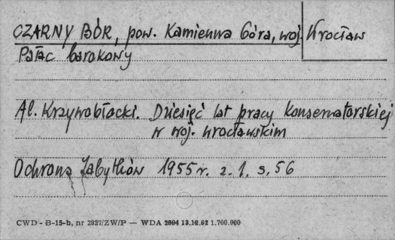 CZARNY BÓR, pow. Kamienna Góra, woj. Wrocław
Pałac barokowy
Al. Krzywobłocki. Dziesięć lat pracy konserwatorskiej
w woj. wrocławskim
Ochrona Zabytków 1955 r. z. 1, s, 56
CWD - B-15-b, nr 2827/ZW/P — WDA 2004 13.10.62 1.700.000